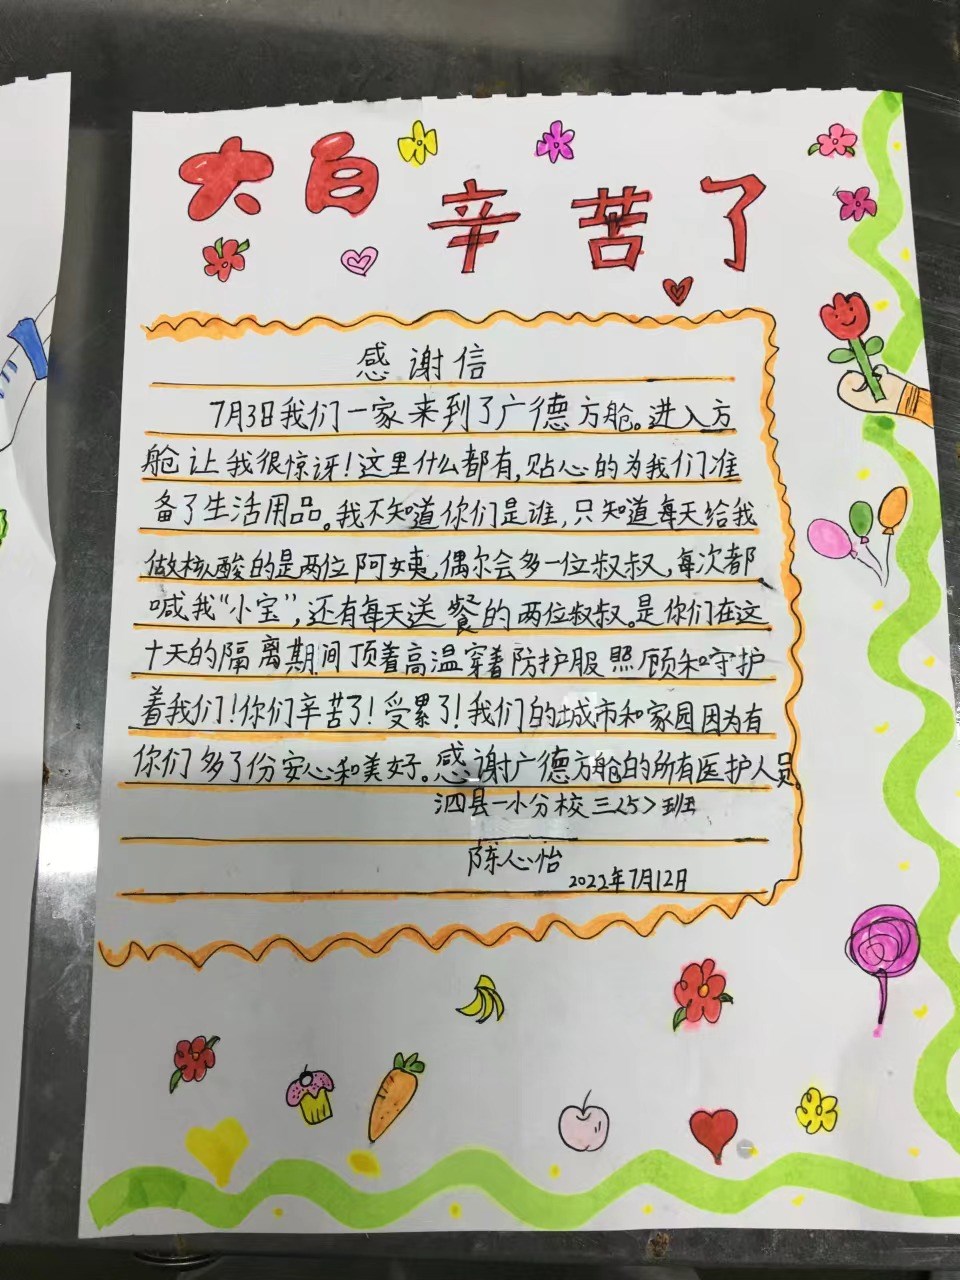 大白
辛苦了
感谢信
7月3日我们一家来到了广德方舱。进入方
舱让我很惊讶！这里什么都有，贴心的为我们准
备了生活用品。我不知道你们是谁，只知道每天给我
做核酸的是两位阿姨，偶尔会多一位叔叔，每次都
喊我“小宝”，还有每天送餐的两位叔叔。是你们在这
十天的隔离期间顶着高温穿着防护服照顾和守护
着我们！你们辛苦了！受累了！我们的城市和家园因为有
你们多了份安心和美好。感谢广德方舱的所有医护人员
泗县一小分校三〈5〉班
陈心怡
2022年7月12日